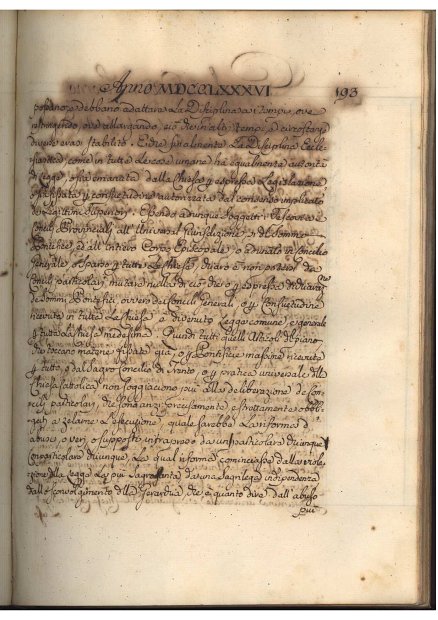 Anno MDCCLXXXVI 193
possano, e debbano adattare la Disciplina a' tempi, ove
ristringendo, ove allargando, ciò che in altri tempi, e circostanze
stabilito. E che finalmente La Disciplina Eccle
siastica, come in tutte Le cose umane ha egualmente autorità
di Legge, o sia emanata dalla Chiesa espressa Legislazione
o sia consuetudine autorizzata dal consenso implicito
de Legittimi Superiori. Essendo adunque soggetti i Vescovi, e
Concilj Provinciali all'universal giurisdizione del Sommo
Pontefice, ed all'intiero Corpo Episcopale, o adunato in Concilio
Generale, o sparso tutta La Chiesa; chiaro è non poter de
Concilj particolari mutare nulla di ciò che o espressa
de Sommi Pontefici, ovvero de Concilj Generali, o consuetudine
ricevuta in tutta La Chiesa è divenuto Legge comune, e generale
tutta la Chiesa medesima. Quindi tutti quelli Articoli del piano
che toccano materie fissate già, o Pontificie massime ricevute
tutto, o dal Sagro Concilio di Trento, o pratica universale della
Chiesa Cattolica non soggiaciono più alla deliberazione de Con
cilj particolari, che sono anzi precisamente, e strettamente obbli
gati a zelarne L'esecuzione. quale sarebbe La riforma d'
abuso, o vero, o supposto intrapresa da un particolare
La qual riforma cominciasse dalla viola
zione delle Legge Le più sagrosante, da una sagrilega indipendenza
dallo sconvolgimento della Gerarchia, che è quanto dire dall'abuso
più